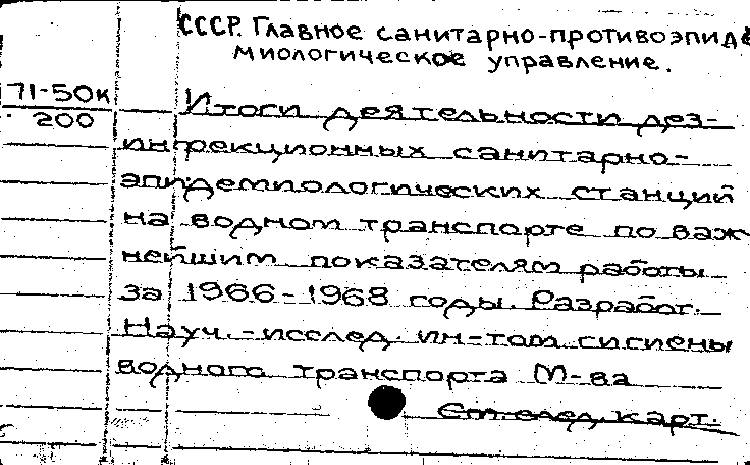 СССР. Главное санитарно-противоэпиде
миологическое управление.
71-50к
200
Итоги деятельности дез-
инфекционных санитарно-
эпидемиологических станций
на водном транспорте по важ
нейшим показателям работы
за 1966-1968 годы. Разработ.
Науч.-исслед. ин-том гигиены
водного транспорта М-ва
См. след. карт.